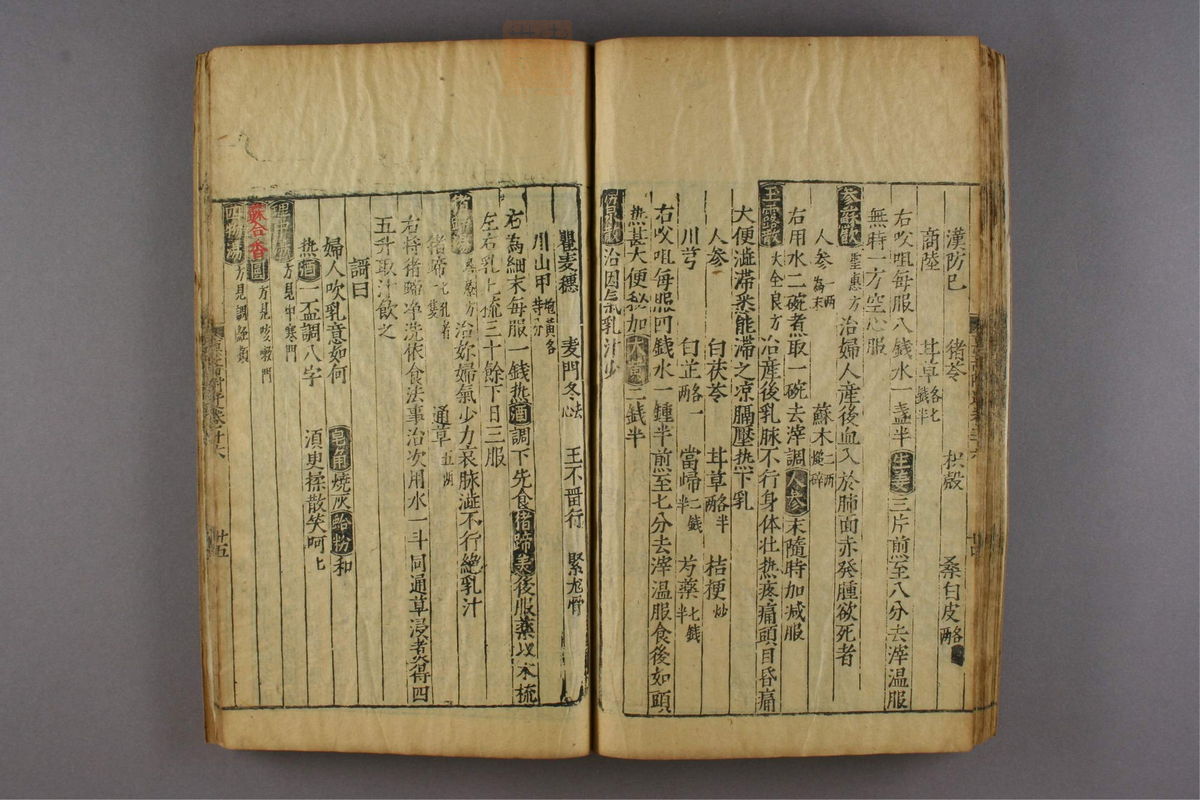 漢防己 猪苓 枳殻 桑白皮各二兩
商陸 甘草各七錢半
右㕮咀每服八錢水一盞半生姜三片煎至八分去滓温服
無時一方空心服
參蘇散 聖惠方 治婦人産後血入於肺面赤發腫欲死者
人參一兩為末 蘇木二兩搥碎
右用水二碗煮取一碗去滓調人參末隨時加减服
玉露散 大全良方 治産後乳脉不行身体壮热疼痛頭目昏痛
大便澁滞悉能滞之凉膈壓热下乳
人參 白茯苓 甘草各半兩 桔梗炒
川芎 白芷各一兩 當歸二錢半 芍藥七錢半
右㕮咀每服四錢水一鍾半煎至七分去滓温服食後如頭
热甚大便秘加大黄二錢半
治因氣乳汁少
瞿麦穗 麦門冬去心 王不畱行 緊龙骨
川山甲炮黄各等分
右為細末每服一錢热酒調下先食猪蹄羹後服藥以木梳
左右乳上梳三十餘下日三服
猪蹄湯 治妳婦氣少力衰脉澁不行絶乳汁
猪蹄一隻 通草五兩
右将猪蹄净洗依食法事治次用水一斗同通草浸煮得四
五升取汁飲之
謌曰
婦人吹乳意如何 皂角燒灰蛤粉和
热酒一盃調八字 湏臾揉散笑呵匕
理中湯 方見中寒門
蘇合香圓 方見咳嗽門
四物湯 方見調經類
廿四
廿五